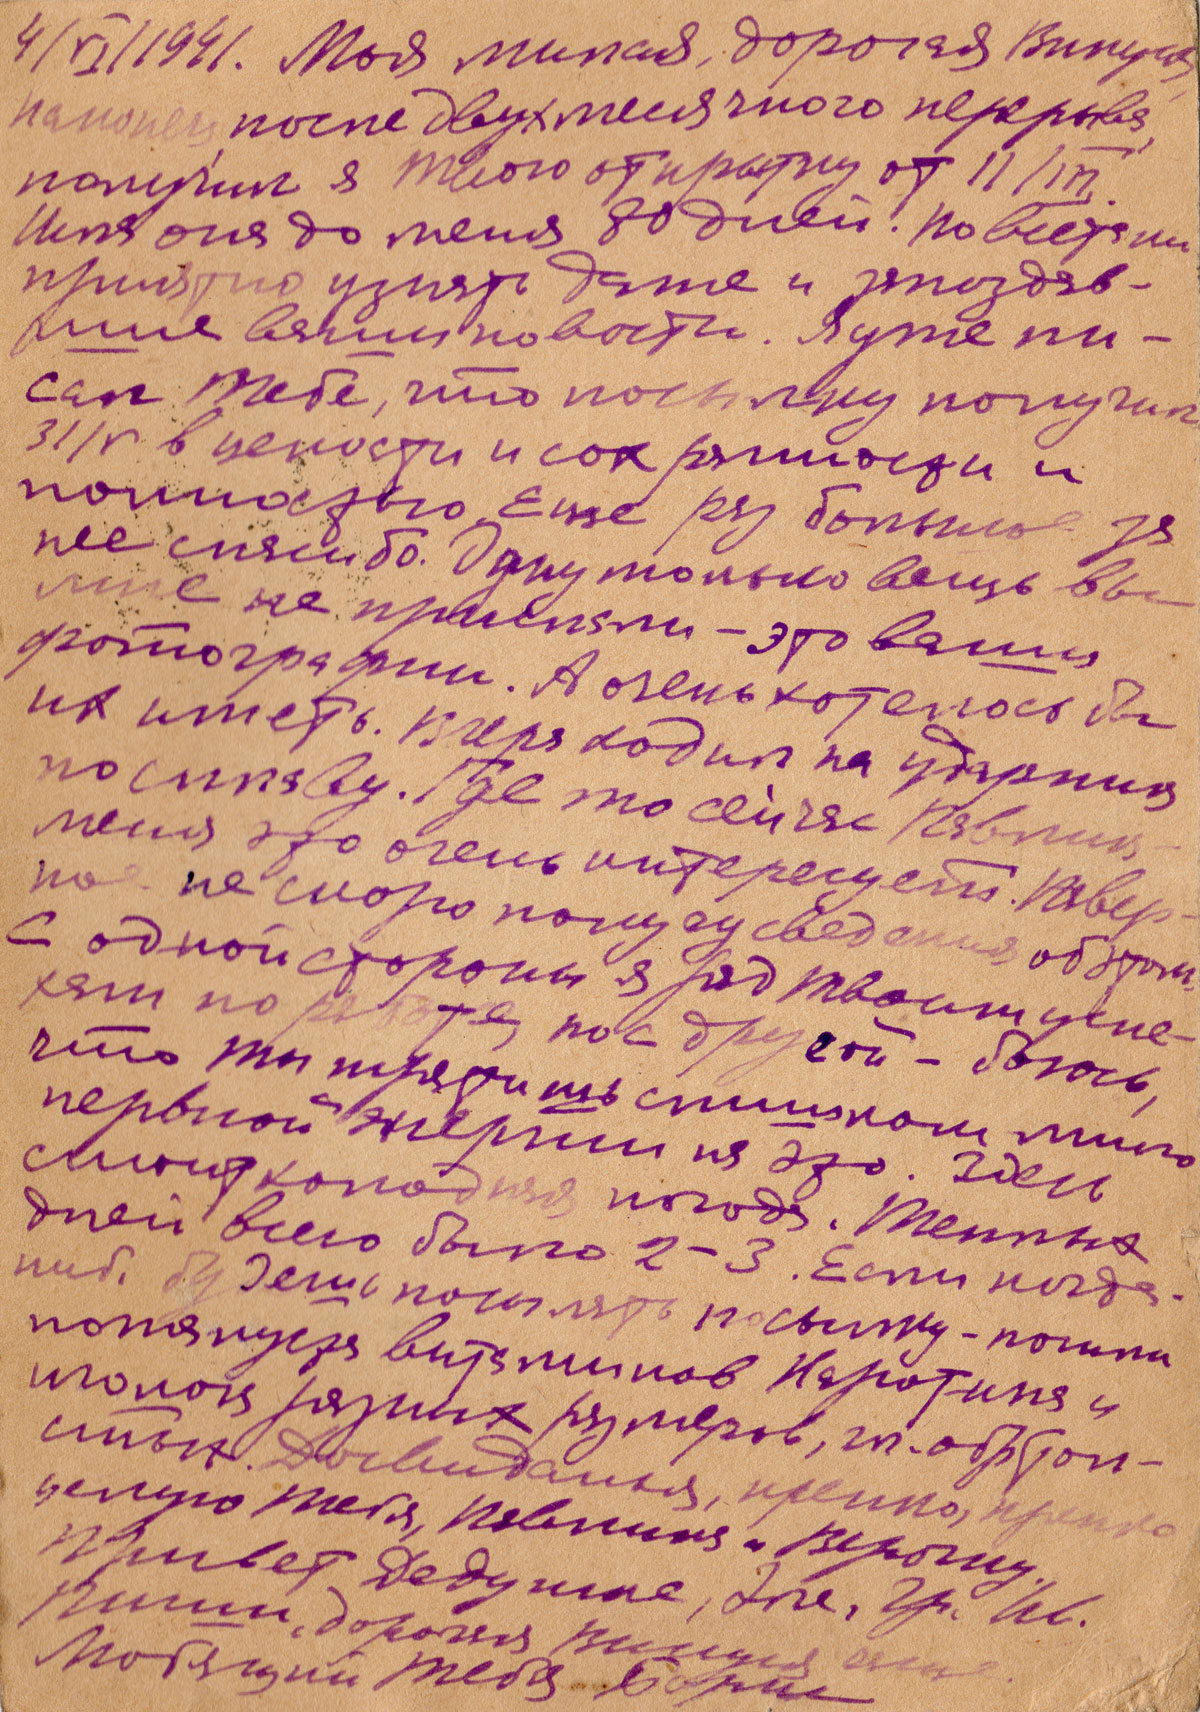 4/VI/1941. Моя милая, дорогая Винуся,
наконец, после двухмесячного перерыва,
получил я твою открытку от 11/III.
Шла она до меня 80 дней. Но всетаки
приятно узнать даже и запоздав-
шие ваши новости. Я уже пи-
сал тебе, что посылку получил
31/V в целости и сохранности и
полностью. Еще раз большое за
нее спасибо. Одну только вещь вы
мне не прислали – это ваши
фотографии. А очень хотелось бы
их иметь. Вчера ходил на
по сплаву. Где то сейчас Павлик –
меня это очень интересует. Навер-
ное не скоро получу сведения об этом.
С одной стороны я рад твоим успе-
хам по работе, но с другой – боюсь,
что ты тратишь слишком много
нервной энергии на это. Здесь
стоит холодная погода. Теплых
дней всего было 2–3. Если когда-
ниб. будешь посылать посылку – пошли
пожалуйста витаминов Каротина и
иголок разных размеров, т.
Досвиданья, крепко, крепко
целую тебя, Павлика и Верочку.
Привет Дедушке, Зое, Гр. Ив.
Пиши, дорогая Винуся
Любящий тебя Борис